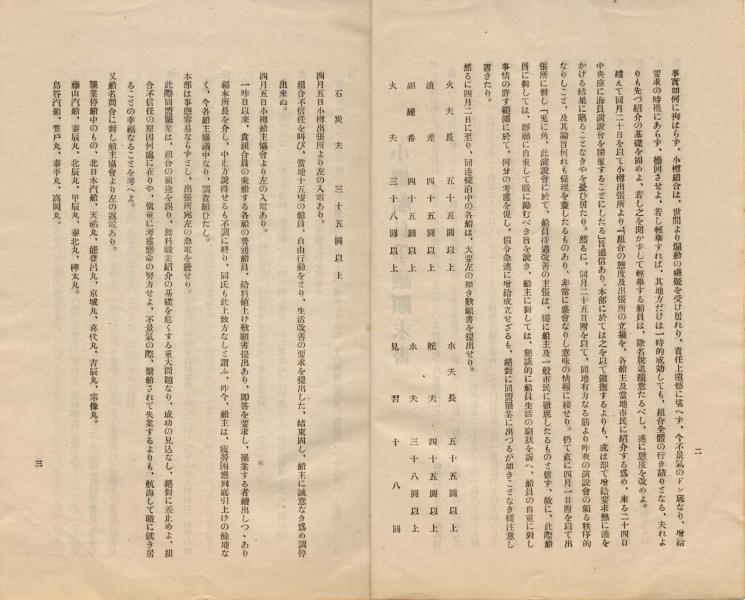 事實如何に拘はらず、小樽組合は、世間より煽動の嫌疑を受け居れり、責任上電慰に堪へず、今不景氣のドン底なり、増給
要求の時機にあらず、極回させよ、若し輕擧すれば、其地方だけは一時的成効しても、組合全體の行き詰りとなる、夫れよ
りも先づ紹介の基礎を固めよ、若し之を聞かずして輕擧する船員は、除名脱退隨意たるべし、速に態度を改めよ。
越えて同月二十日を以て小樽出張所より「組合の態度及出張所の立場を、各船主及當地市民に紹介する爲め、來る二十四日
中央座に海員演說會を開催することにしたる」旨通信あり、本部に於ては之を以て鎭撫するよりも、或は却て増給要求熱に油を
かける結果に陷ることなきやを憂ひ居たり。然るに、同月二十五日附を以て、同地有力なる筋より昨夜の演說會の頗る秩序的
なりしこと、及其論旨何れも條理を盡したるものあり、非常に盛會なりし意味の情報に接せり。仍て直に四月一日附を以て出
張所に對し「兎に角、此演說會に於て、船員待遇改善の主張は、慥に船主及一般市民に徹底したるものと信ず、故に、此際船
員に對しては、靜肅に自重して職に勵むべき旨を說き、船主に對しては、懇談的に船員生活の窮狀を訴へ、船員の自重に對し
事情の許す範圍に於て、何分の考慮を促し、假令急速に増給成立せざるも、絕對に同盟罷業に出づるが如きことなき樣注意し
置きたり。
然るに四月二日に至り、同港碇泊中の各船は、大要左の如き歎願書を提出せり。
火夫長 五十五圓以上 水夫長 五十五圓以上
油差 四十五圓以上 舵夫 四十五圓以上
副罐番 四十圓以上 水夫 三十八圓以上
火夫 三十八圓以上 見習 十八圓
二
石炭夫 三十五圓以上
四月五日小樽出張所より左の入電あり。
組合不信任を叫び、當地十五隻の船員、自由行動をとり、生活改善の要求を提出した、結束固し、船主に誠意なき爲め調停
出來ぬ。
四月五日小樽船主協會より左の入電あり。
一昨日以來、貴組合員の乘船する各船の普通船員、給料値上げ歎願書提出あり、即答を要求し、罷業する者續出しつゝあり
福本所長を介し、中止方說得せるも不調に終り、同氏も此上致方なしと謂ふ、昨今、船主は、疲勞困憊到底引上げの餘地な
く、今各船主協議中なり、調査願ひたし。
本部は事態容易ならずとし、出張所宛左の急電を發せり。
此際同盟罷業は、組合の前途を誤り、無料職業紹介の基礎を危くする重大問題なり、成功の見込なし、絕對に差止めよ、組
合不信任の原因何處に在りや、愼重に考慮懸命の努力せよ、不景氣の際、繫船されて失業するよりも、航海して職に就き居
ることの幸福なることを考へよ。
又船名問合に對し船主協會より左の返電あり。
罷業停船中のもの、北日本汽船、天祐丸、能登呂丸、京城丸、喜代丸、吉辰丸、宗像丸。
藤山汽船、泰辰丸、北辰丸、甲辰丸、泰北丸、樺太丸。
島谷汽船、笠戸丸、泰平丸、富岡丸。
三